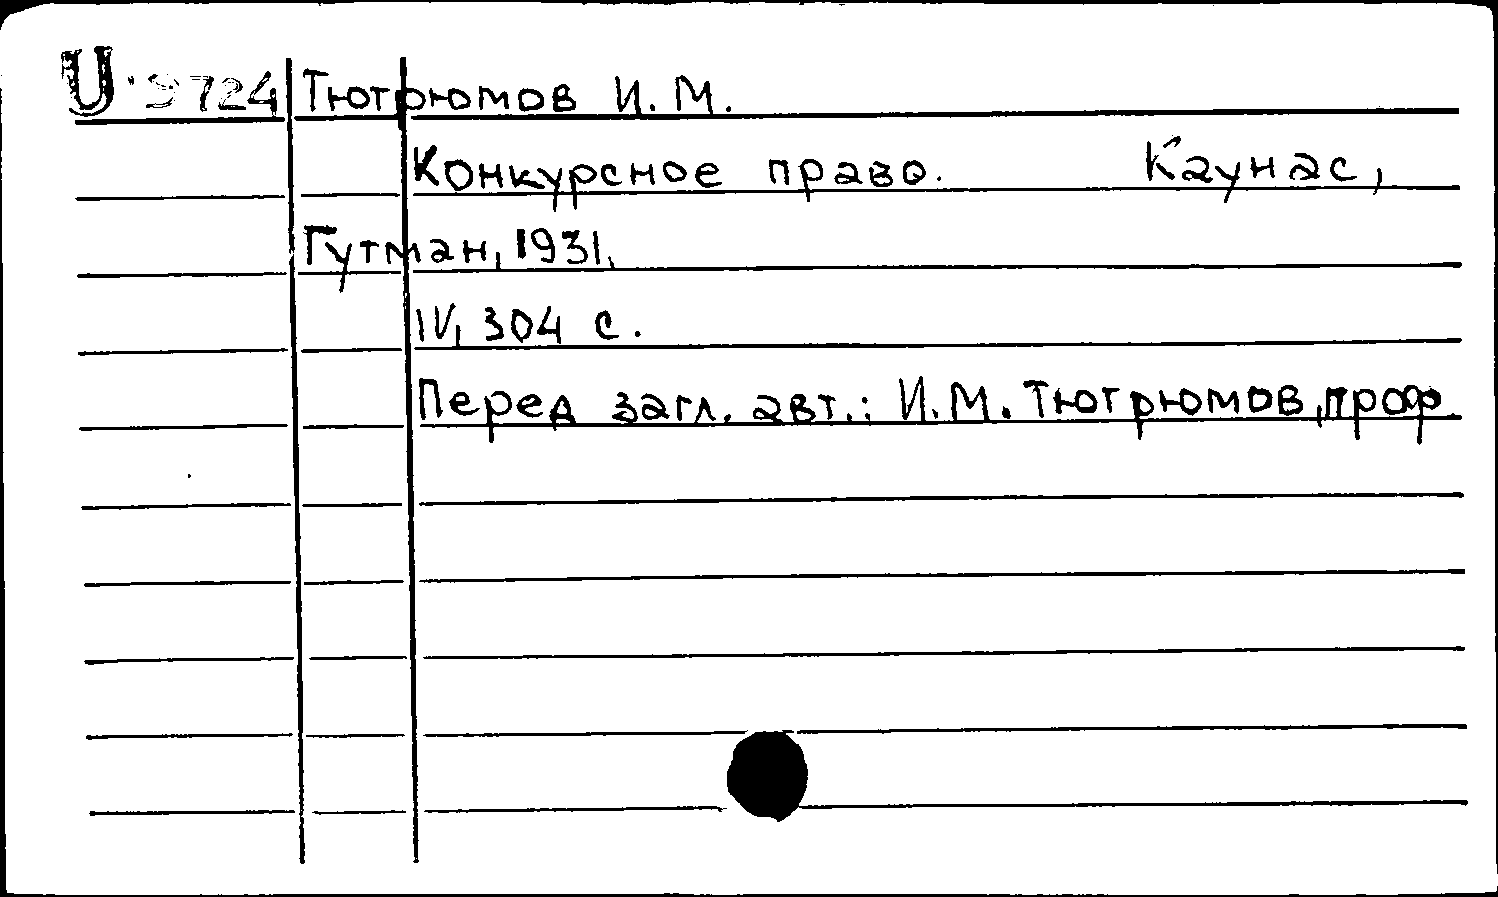 U 9724 Тютрюмов И. М.
Конкурсное право. Каунас,
Гутман, 1931.
IV, 304 с.
Перед загл. авт.: И.М. Тютрюмов, проф.